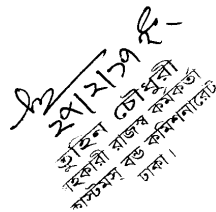 ২৭/২/১৭ ইং
তুহিন চৌধুরী
সহকারী রাজস্ব কর্মকর্তা
কাস্টমস বন্ড কমিশনারেট
ঢাকা।